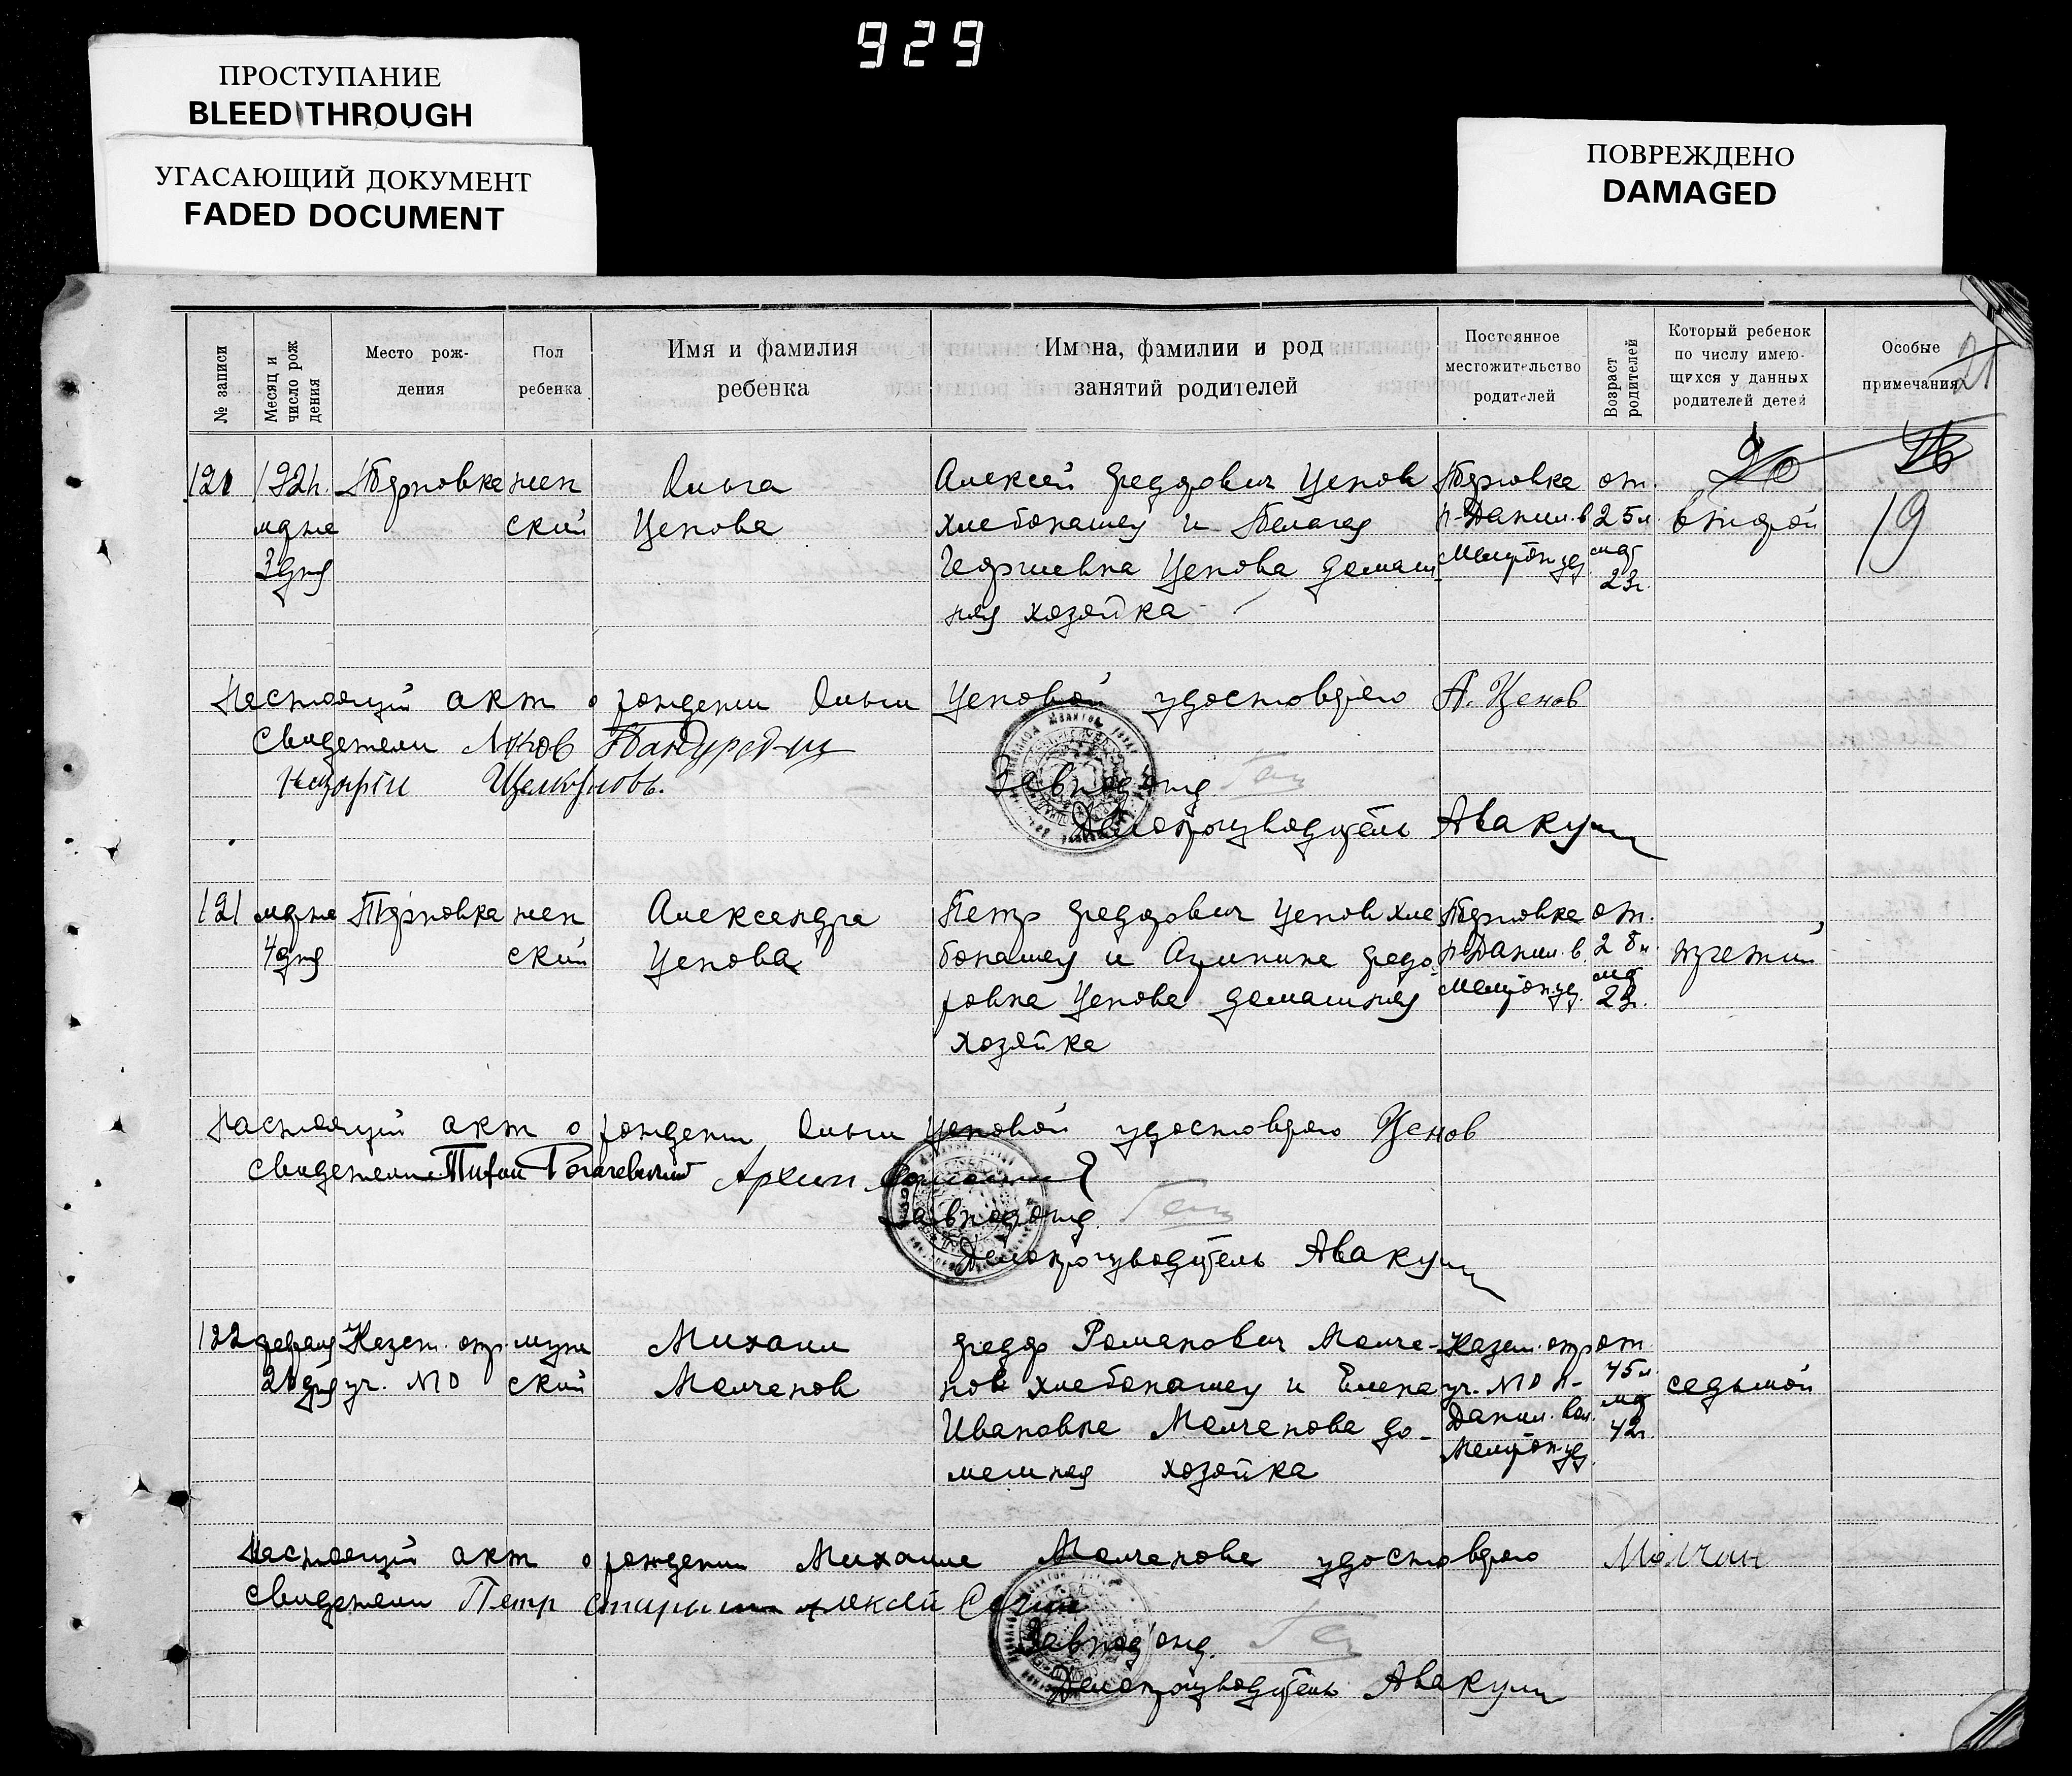 929
ПРОСТУПАНИЕ
BLEED THROUGH
УГАСАЮЩИЙ ДОКУМЕНТ
FADED DOCUMENT
ПОВРЕЖДЕНО
DAMAGED
№ записи
Месяц и число рож дения
Место рож-
дения
Пол
ребенка
Имя и фамилия
ребенка
Имена, фамилии и род
занятий родителей
Постоянное
местожительство
родителей
Возраст родителей
Который ребенок
по числу имею-
щихся у данных
родителей детей
Особые
примечания
21
26
120 192 Терновка жен Ольга Алексей Федорович Ценов Терновка от.
марта ский Ценова хлебопашец и Пелагея Данил. в 25 л. второй 19
3 дня Георгиевна Ценова домаш Мелитоп. уез мат 23 г.
няя хозяйка
Настоящий акт о рождении Ольги Ценовой удостоверяю А. Ценов
Свидетели
Завподотд.
Делопроизводитель Авакум
121 марта Терновка жен Александра Петр Федорович Ценов хле Терновка от.
4 дня ский Ценова бопашец и Акулина Федо Данил. в. 28 л. третий
ровна Ценова домашняя Мелитоп. уез. мат 23 г.
хозяйка
Настоящий акт о рождении Ольги Ценовой удостоверяю Ценов
Свидетели Тифан Рогачевский Архип
Завподотд.
Делопроизводитель Авакум
122 февраля Казен. отр. муж Михаил Федор Романович Молча- Казен. отр от
дня уч. №10 ский Молчанов нов хлебопашец и Елена уч. №10 45 л. седьмой
Ивановна Молчанова до- Данил. вол. мат 42 г.
машняя хозяйка Мелитоп. уез
Настоящий акт о рождении Михаила Молчанова удостоверяю Молчан
Свидетели Петр Алексей
Завподотд.
Делопроизводитель Авакум